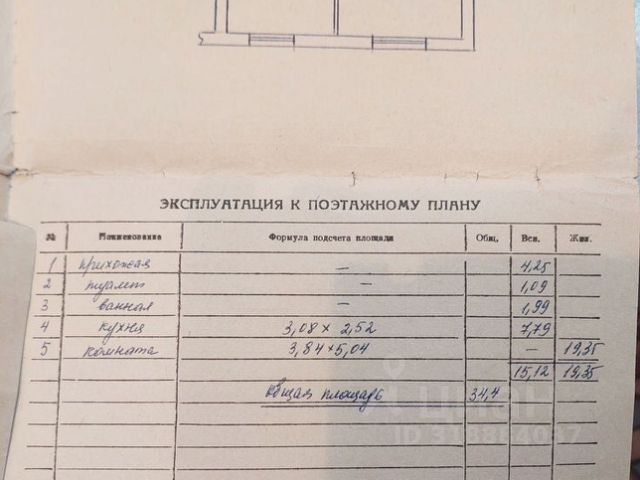 ЭКСПЛУАТАЦИЯ К ПОЭТАЖНОМУ ПЛАНУ
№ Наименование Формула подсчета площади Общ. Всп. Жил.
1 прихожая — 4,25
2 туалет — 1,09
3 ванная — 1,99
4 кухня 3,08 × 2,52 7,79
5 комната 3,84 × 5,04 — 19,35
15,12 19,35
Общая площадь 34,4
циан